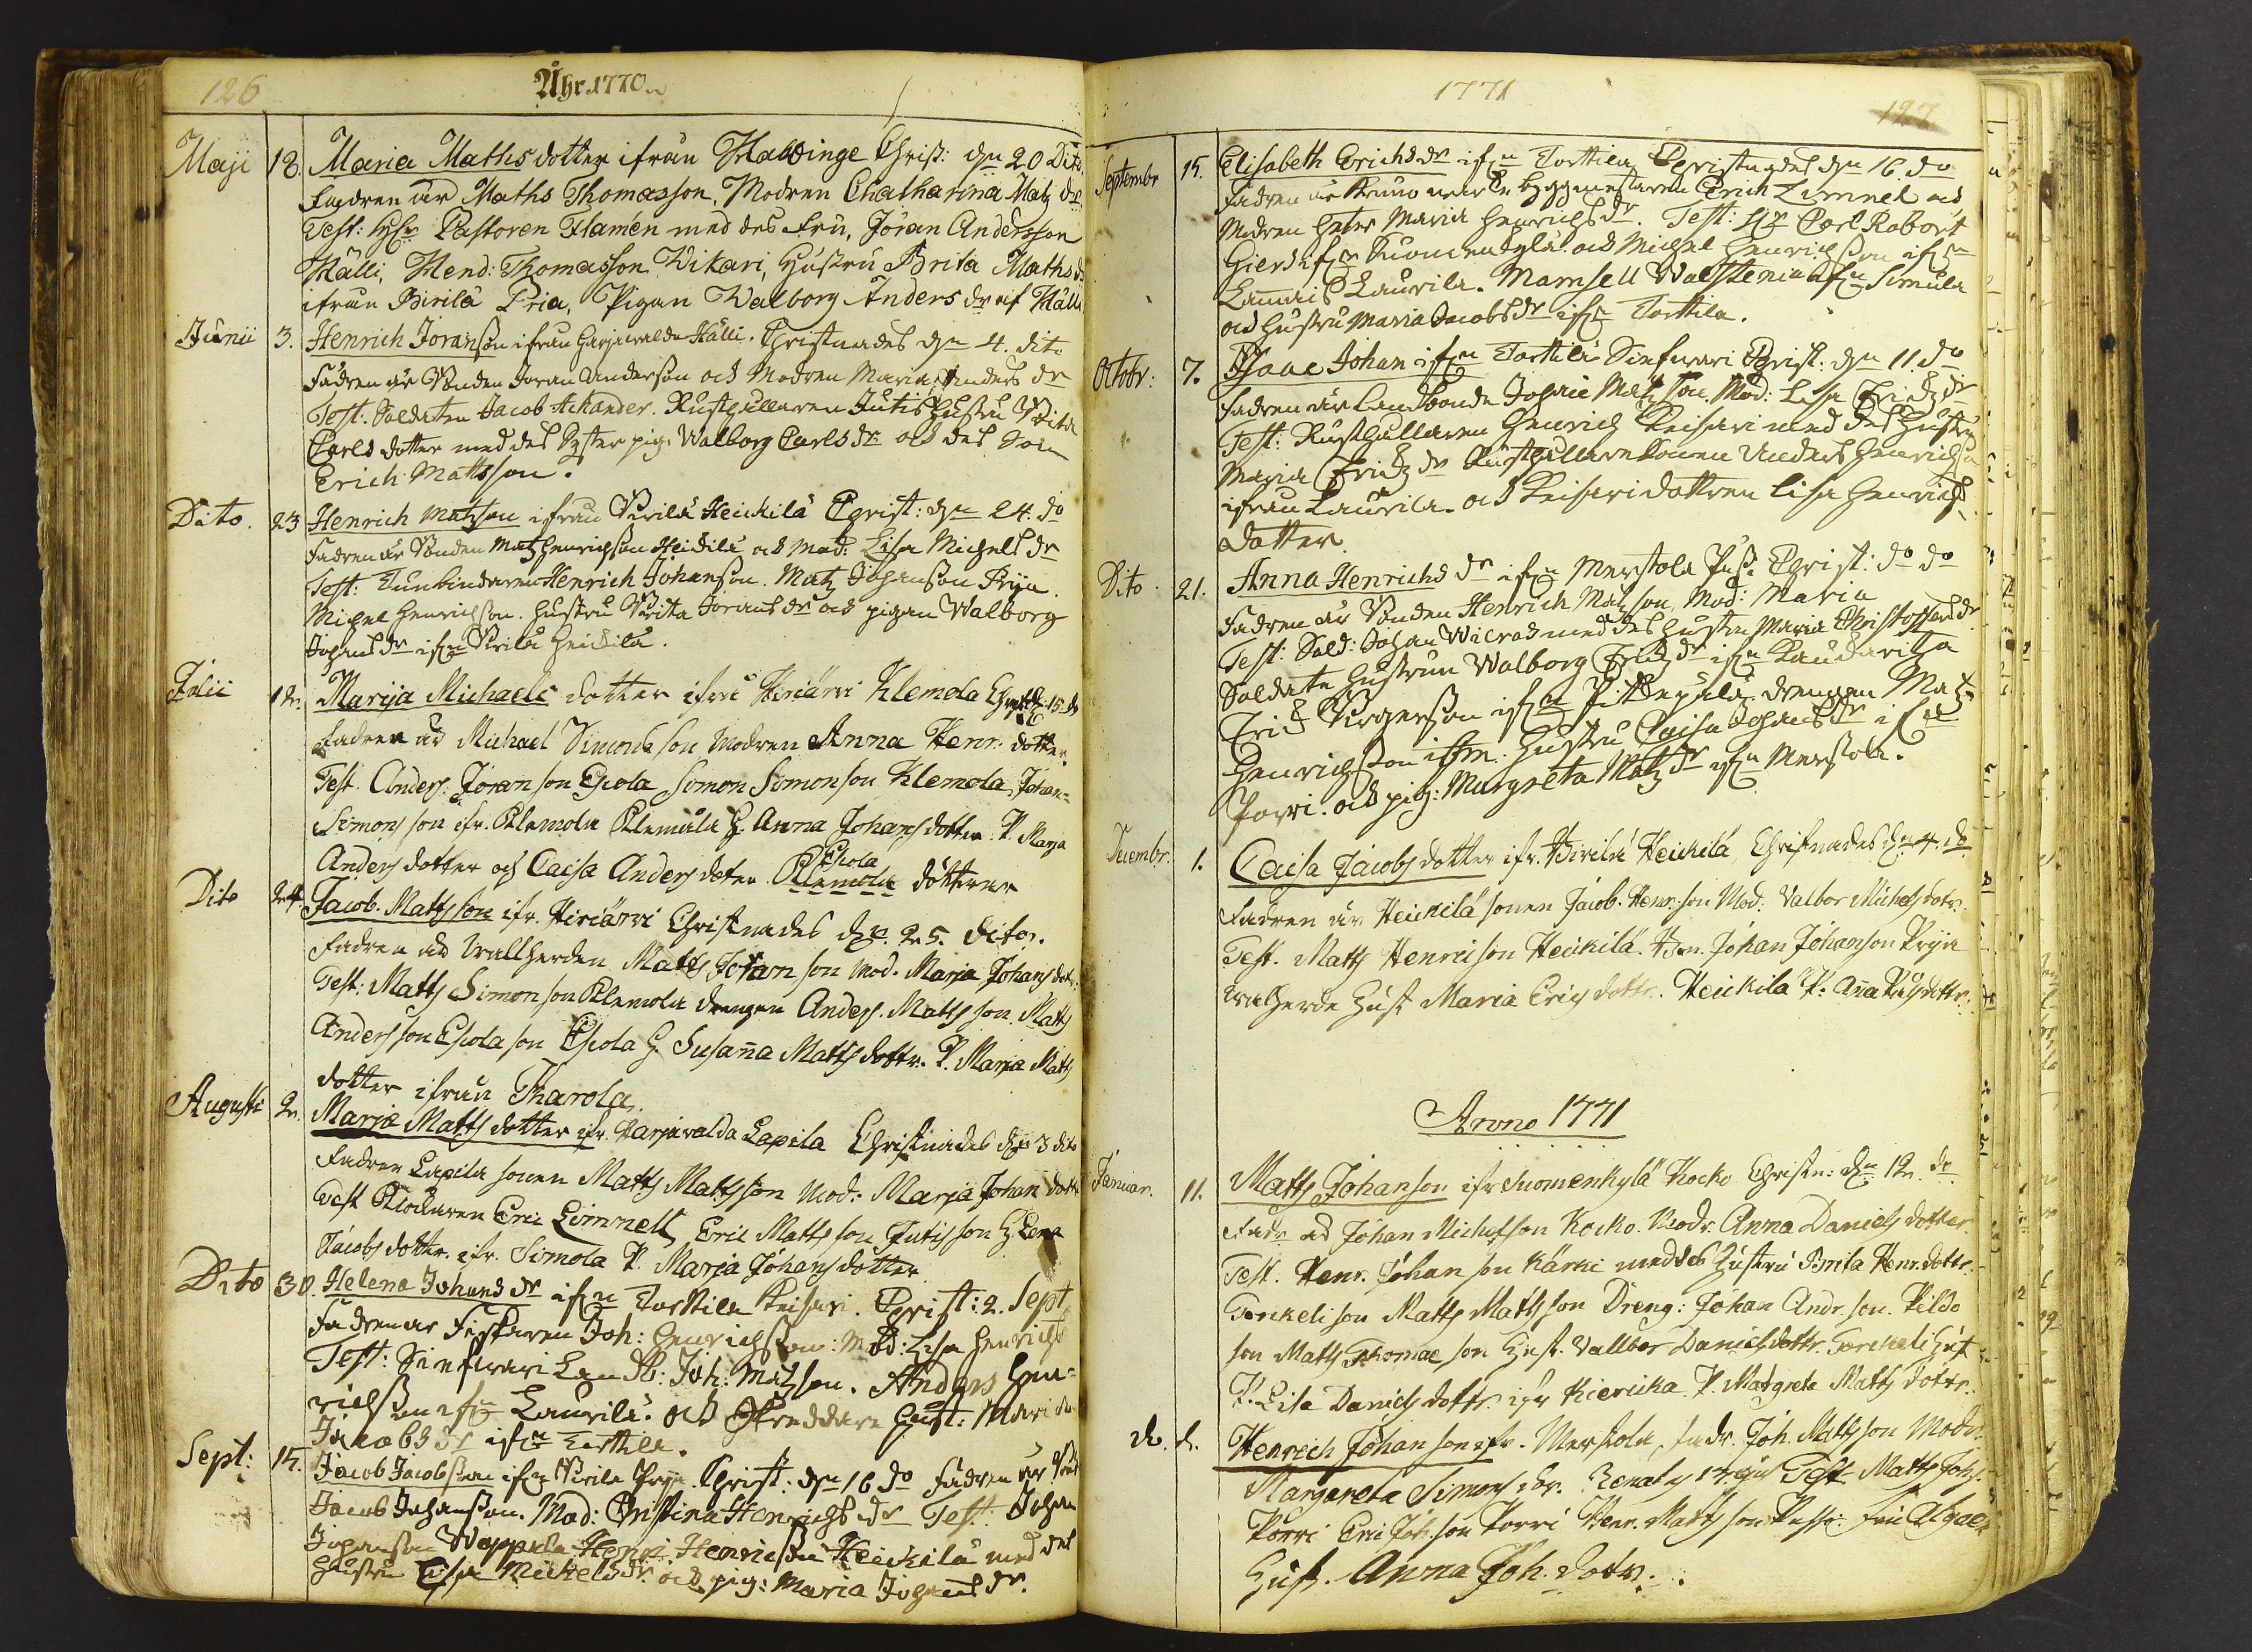 126
Åhr 1770
Maji 18. Maria Mathsdotter ifrån Hallvinge Christ: dn 20 Dito
Fadren är Maths Thomasson, Modren Chatharina Matz dr
Test: Pastoren Flamén med des Fru, Jöran Andersson
Källi, Hend: Thomasson Wikari, Hustru Brita Maths dr
ifrån Birilä Pria, Pigan Walborg Anders dr af Källi
Junii 3. Henrich Joransson ifrån Harjawalda Källi. Christnades dn 4. dito
Fadren är Bonden Joran Anderson och Modren Maria Anders dr
Test: Soldaten Jacob Ackander. Rusthållaren Jutis Hustru Brita
Carls dotter med des Syster pig: Walborg Carls dr och des son
Erich Mattsson.
Dito. 23 Henrich Matzson ifrån Birilä Heickilä Christ: dn 24. do
Fadren är Bonden Matz Henrichson Heickilä och Mod: Lisa Michels dr
Test: Tunbindaren Henrich Johanson. Matz Johanson Pryn.
Michel Henrichson. Hustru Brita Jorans dr och pigan Walborg
Johans dr ifrn Birilä Heickilä.
Julii 12. Marija Michaels dotter ifrn Hiriärvi Klemola Christ dn 15 do
Fadren är Michael Simonsson Modren Anna Henr: dotter.
Test. Anders: Joranson Escola Simon Simonson Klemola, Johan
Simons son ifr. Klemola Klemola H. Anna Johans dotter P. Marja
Anders dotter och Caisa Anders doter Escola Klemola döttrar
Dito 24 Jacob. Mattsson ifr. Hiriärvi Christnades dn. 25. dito.
Fadren är Vallherden Matts Joranson Mod. Marja Johans dotr.
Test: Matts Simonson Klemola drengen Anders Matts son. Matts
Andersson Escola son Escola H. Susanna Matts dottr. P. Marja Matts
dotter ifrån Tharola
Augusti 2. Marja Matts dotter ifr. Harjavalda Lapila Christnades dn 3 dito
Fadren Lapila sonen Matts Mattsson Mod: Marja Johan dottr
Test Klockaren Eric Limnell Eric Mattsson Jutis son H. Lena
Jacobs dotter ifr. Simola P. Marja Johans dotter
Dito 30. Helena Johans dr ifrn Torttila Keisari. Christ: 2. Sept
Fadren är Fiskaren Joh: Henrichson: Mod: Lisa Henrichs
Test: Siefwari Landb: Joh: Matzson. Anders Hen-
richsson ifrn Laurila. och Skreddare Hust: Maria
Jacobs dr ifrn Torttila.
Sept: 15. Jacob Jacobsson ifrn Birila Pryn Christ: dn 16 do Fadren är Bond
Jacob Johansson. Mod: Christina Henrichs dr Test: Johan
Johansson Henr: Henricson Heickilä med des
Hustru Lisa Michels dr och pig: Maria Johans dr.
1771
127
Septembr 15. Elisabeth Erichs dr ifrn Torttila Christnades dn 16. do
Fadren är byggmestaren Erich Limnel och
Modren heter Maria Henrichs dr. Test: Carl Robort
Gierd ifrn Suomenkylä och Michel Henrichson ifrn
Lammais Laurila. Mamsell Wallstenia ifrn Simula
och Hustru Maria Jacobs dr ifrn Torttila.
Octobr: 7. Isaac Johan ifrn Torttila Siefwari Christ: dn 11. do
Fadren är Landbonde Johan Matzson, Mod: Lisa Erichs dr
Test: Rusthållaren Henrich Keisari med des Hustru
Maria Erichs dr Rusthållare Sonen Anders Henrichson
ifrån Laurila. och Keisari dottren Lisa Henrichs
dotter.
Dito 21. Anna Henrichs dr ifrn Merstola Christ: do do
Fadren är Bonden Henrich Matzson, Mod: Maria
Test: Sold: Johan Wilrad med des Hustru Maria Christoffers dr
Soldate Hustrun Walborg Erichs dr ifrn Kaudaritza
Erich Birgersson ifrn drengen Matz
Henrichsson ifrn. Hustru Caisa Johans dr ifrn
Porri. och pig: Margreta Matz dr ifrn Merstola.
Decembr. 1. Caisa Jacobs dotter ifr. Birilä Heickilä, Christnades dn 4. do
Fadren är Heickilä sonen Jacob. Henr:son Mod: Valbor Michels dotr.
Test. Matts Henricson Heickilä. Johan Johanson Pryn
Vallherde Hust Maria Erics dottr. Heickila P: Anna dottr.
Anno 1771
Januar. 11. Matts Johanson ifr Suomenkylä Kocko Christn: dn 12. do
Fadr är Johan Michelson Kocko. Modr Anna Daniels dotter.
Test. Henr. Johanson Kärki med des Hustru Brita Henr. dottr.
Torckeli son Matts Mattsson Dreng: Johan Andr. son. Pildo
son Matts Thomae son Hust. Vallbor Daniels dottr. Torckeli Hust
P. Lisa Daniels dottr ifr Kiericka P. Margreta Matts dottr.
do. d. Henrich Johanson ifr. Merstola, Fadr. Joh. Mattsson Modr.
Margareta Simons dr. Test Matts Joh.
Porri Eric Joh. son Porri Henr. Matts son
Hust. Anna Joh. dotr.